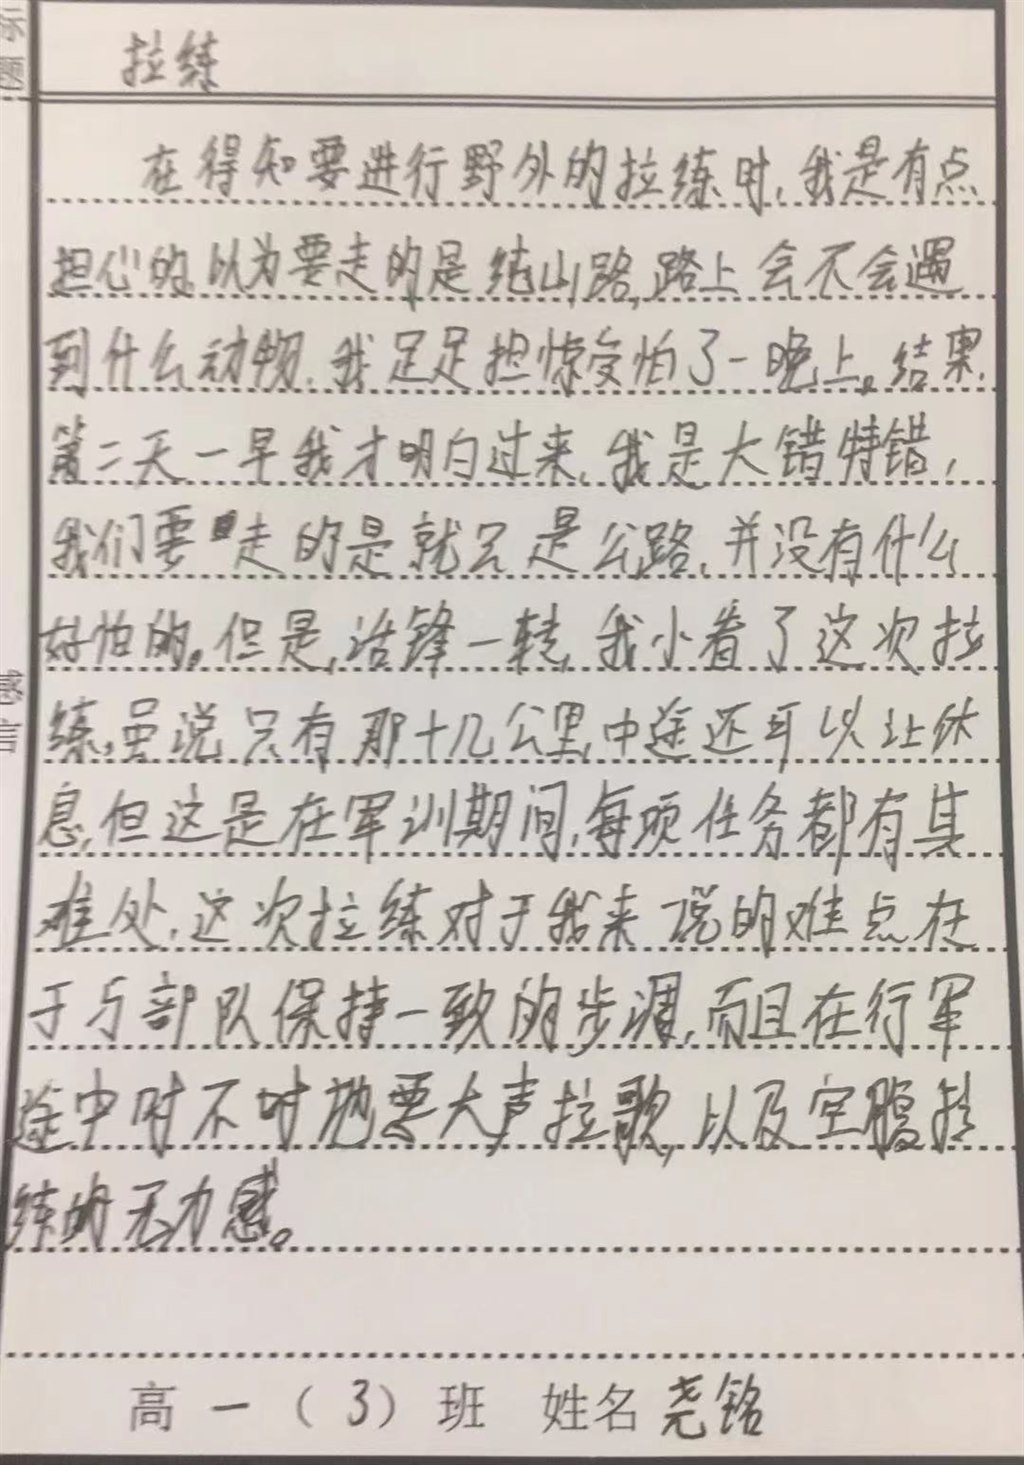 标题
拉练
在得知要进行野外的拉练时,我是有点
担心的,以为要走的是纯山路,路上会不会遇
到什么动物,我足足担惊受怕了一晚上。结果,
第二天一早我才明白过来,我是大错特错,
我们要走的是就只是公路,并没有什么
好怕的。但是,话锋一转,我小看了这次拉
练,虽说只有那十几公里,中途还可以让休
息,但这是在军训期间,每项任务都有其
难处,这次拉练对于我来说的难点在
于与部队保持一致的步调,而且在行军
途中时不时地要大声拉歌,以及空腹拉
练的无力感。
感言
高一(3)班 姓名 尧铭